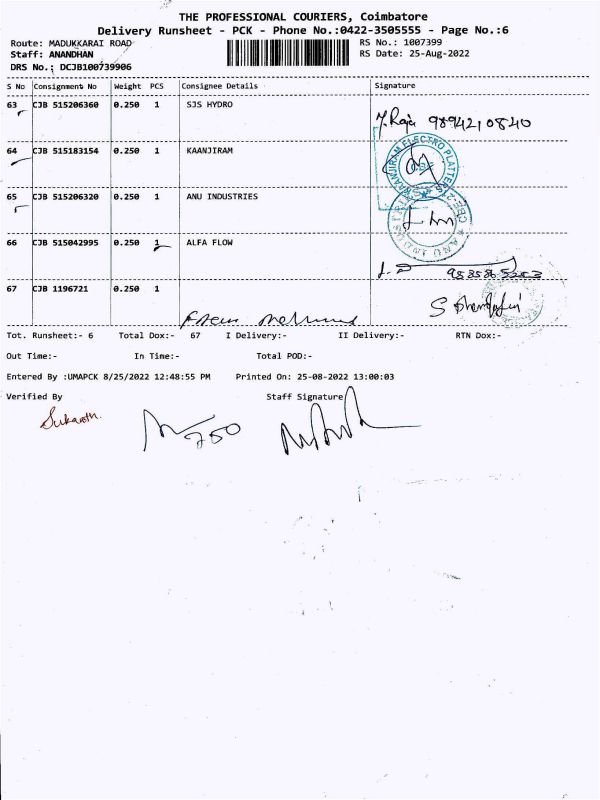 THE PROFESSIONAL COURIERS, Coimbatore
Delivery Runsheet - PCK - Phone No.:0422-3505555 - Page No.:6
Route: MADUKKARAI ROAD
RS No.: 1007399
Staff: ANANDHAN
RS Date: 25-Aug-2022
DRS No.: DCJB100739906
S No Consignment No Weight PCS Consignee Details Signature
63 CJB 515206360 0.250 1 SJS HYDRO
9894210840
64 CJB 515183154 0.250 1 KAANJIRAM
KAANJIRAM ELECTRO PLATTERS
65 CJB 515206320 0.250 1 ANU INDUSTRIES
ANU INDUSTRIES
CBE-2
66 CJB 515042995 0.250 1 ALFA FLOW
67 CJB 1196721 0.250 1
Tot. Runsheet:- 6 Total Dox:- 67 I Delivery:- II Delivery:- RTN Dox:-
Out Time:- In Time:- Total POD:-
Entered By :UMAPCK 8/25/2022 12:48:55 PM Printed On: 25-08-2022 13:00:03
Verified By Staff Signature
750